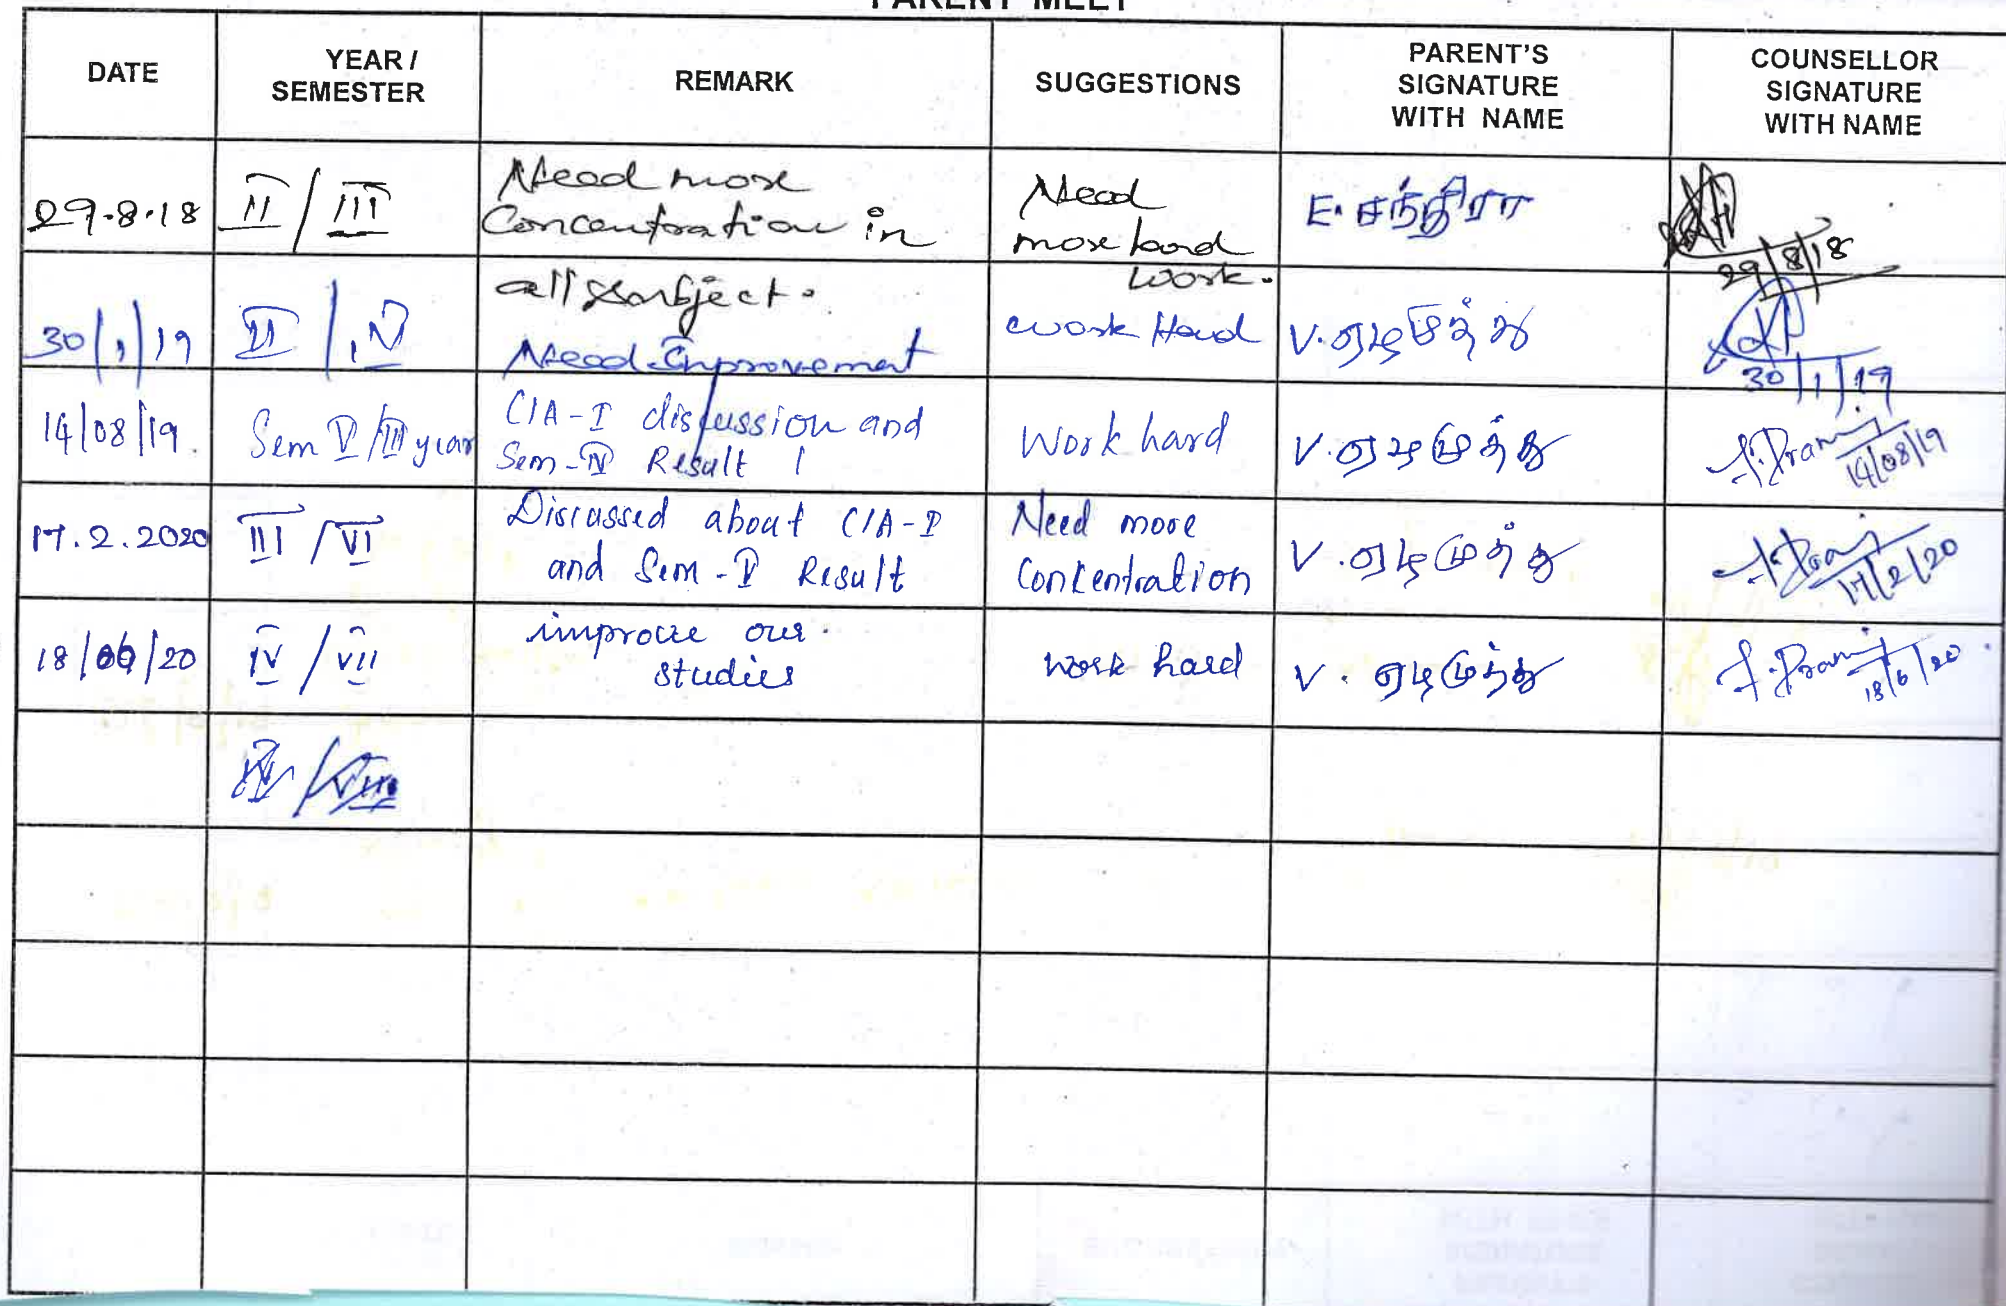 PARENT MEET
DATE
YEAR / SEMESTER
REMARK
SUGGESTIONS
PARENT'S SIGNATURE WITH NAME
COUNSELLOR SIGNATURE WITH NAME
29.8.18
II / III
Need more
Concentration in
all subject.
Need
more hard
work.
E. சந்திரா
29/8/18
30/1/19
II / IV
Need Improvement
work Hard
V. ஏழுமுத்து
30/1/19
14/08/19
Sem V / III year
CIA-I discussion and
Sem-IV Result
Work hard
V. ஏழுமுத்து
14/08/19
17.2.2020
III / VI
Discussed about CIA-I
and Sem-V Result
Need more
Concentration
V. ஏழுமுத்து
17/2/20
18/06/20
IV / VII
improve our
studies
work hard
V. ஏழுமுத்து
18/6/20